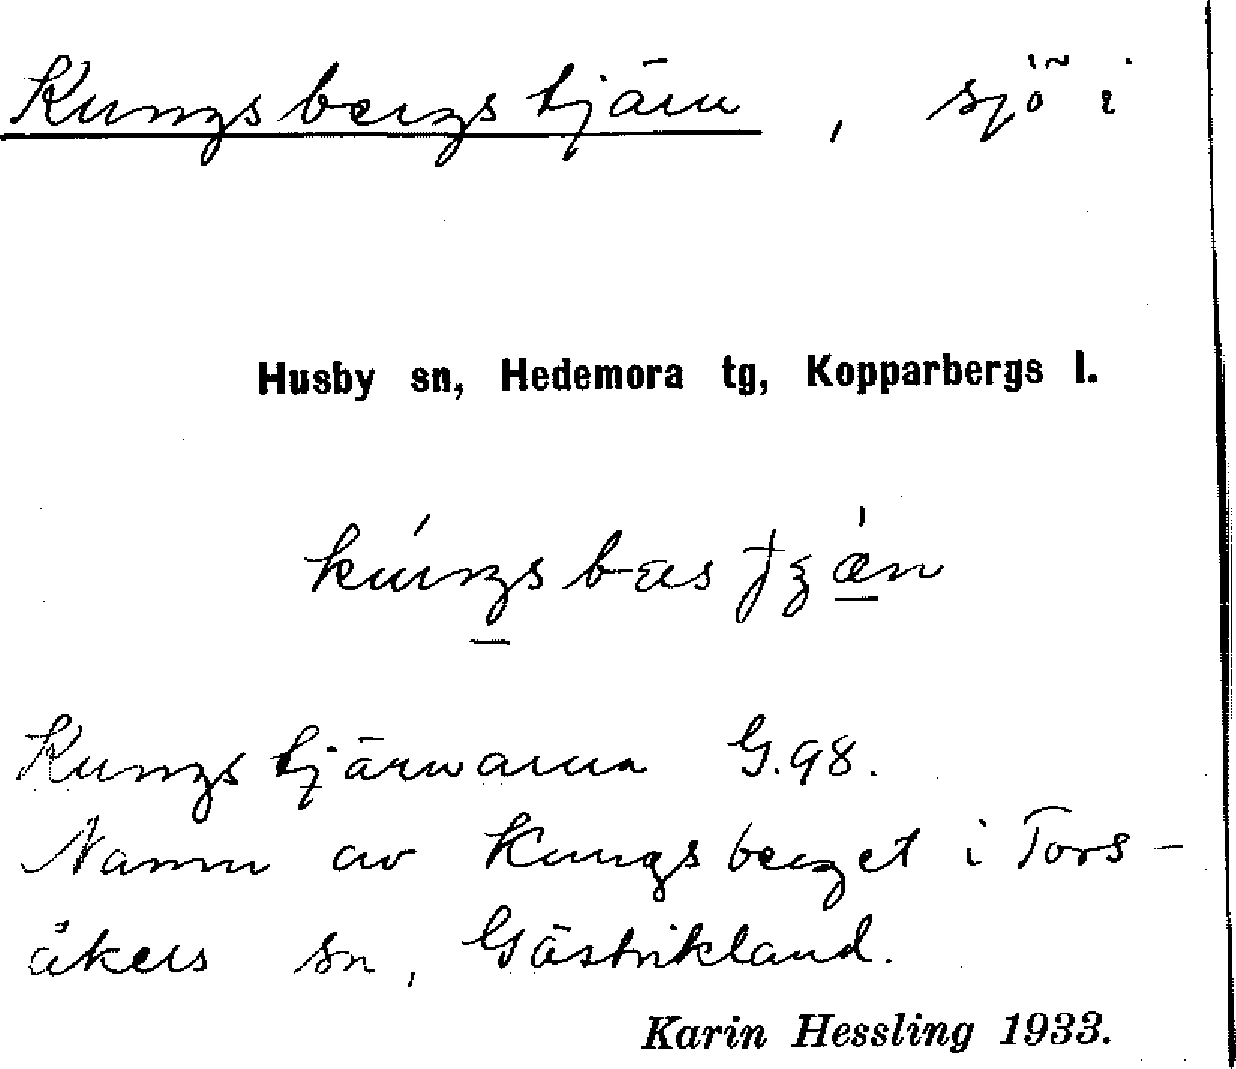 Kungsbergstjärn, sjö i
Husby sn, Hedemora tg, Kopparbergs l.
Kungstjärnarna G.98.
Namn av Kungsberget i Tors-
åkers sn, Gästrikland.
Karin Hessling 1933.